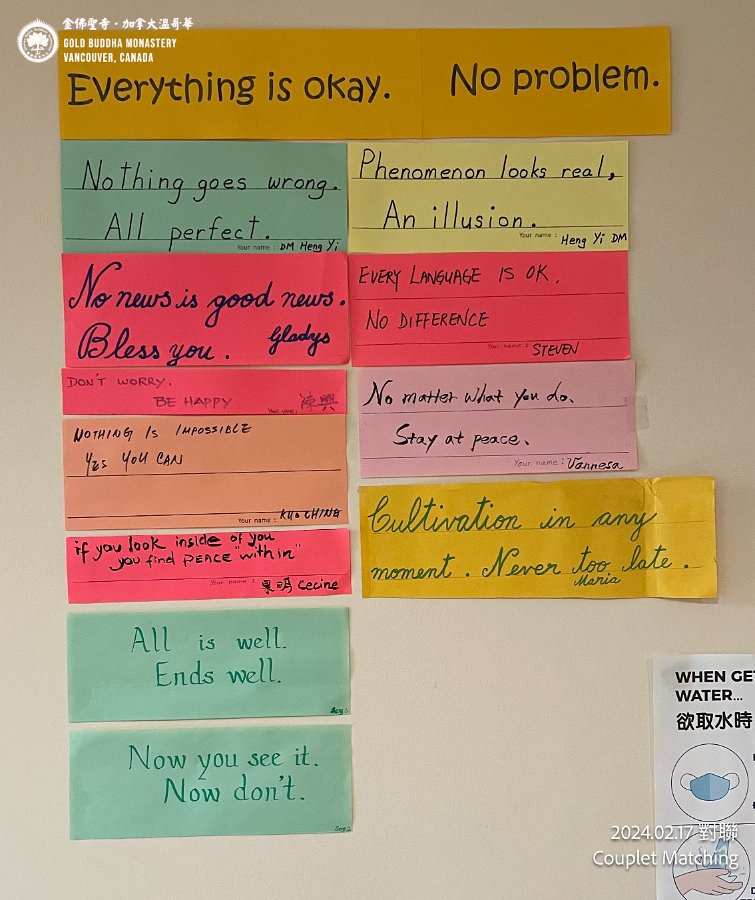 金佛聖寺·加拿大溫哥華
GOLD BUDDHA MONASTERY
VANCOUVER, CANADA
Everything is okay. No problem.
Nothing goes wrong.
All perfect.
Your name : DM Heng Yi
Phenomenon looks real,
An illusion.
Your name : Heng Yi DM
No news is good news.
Bless you. Gladys
EVERY LANGUAGE IS OK.
NO DIFFERENCE
Your name : STEVEN
DON'T WORRY.
BE HAPPY
Your name : 陳興
No matter what you do.
Stay at peace.
Your name : Vannesa
NOTHING IS IMPOSSIBLE
YES YOU CAN
Your name : KUO CHING
Cultivation in any
moment. Never too late.
Maria
if you look inside of you
you find PEACE "within"
Your name : 果明 Cecine
All is well.
Ends well.
Now you see it.
Now don't.
WHEN GE
WATER...
欲取水時
2024.02.17 對聯
Couplet Matching